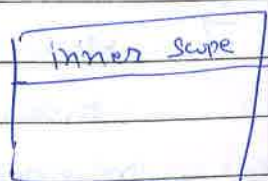 inner scope